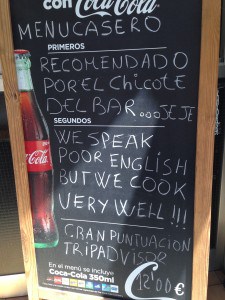 con Coca-Cola
MENU CASERO
PRIMEROS
RECOMENDADO
POR EL Chicote
DEL BAR...JEJE
SEGUNDOS
WE SPEAK
POOR ENGLISH
BUT WE COOK
VERY WELL!!!
GRAN PUNTUACION
TRIPADVISOR
En el menú se incluye
Coca-Cola 350ml
12'00 €
Coca-Cola